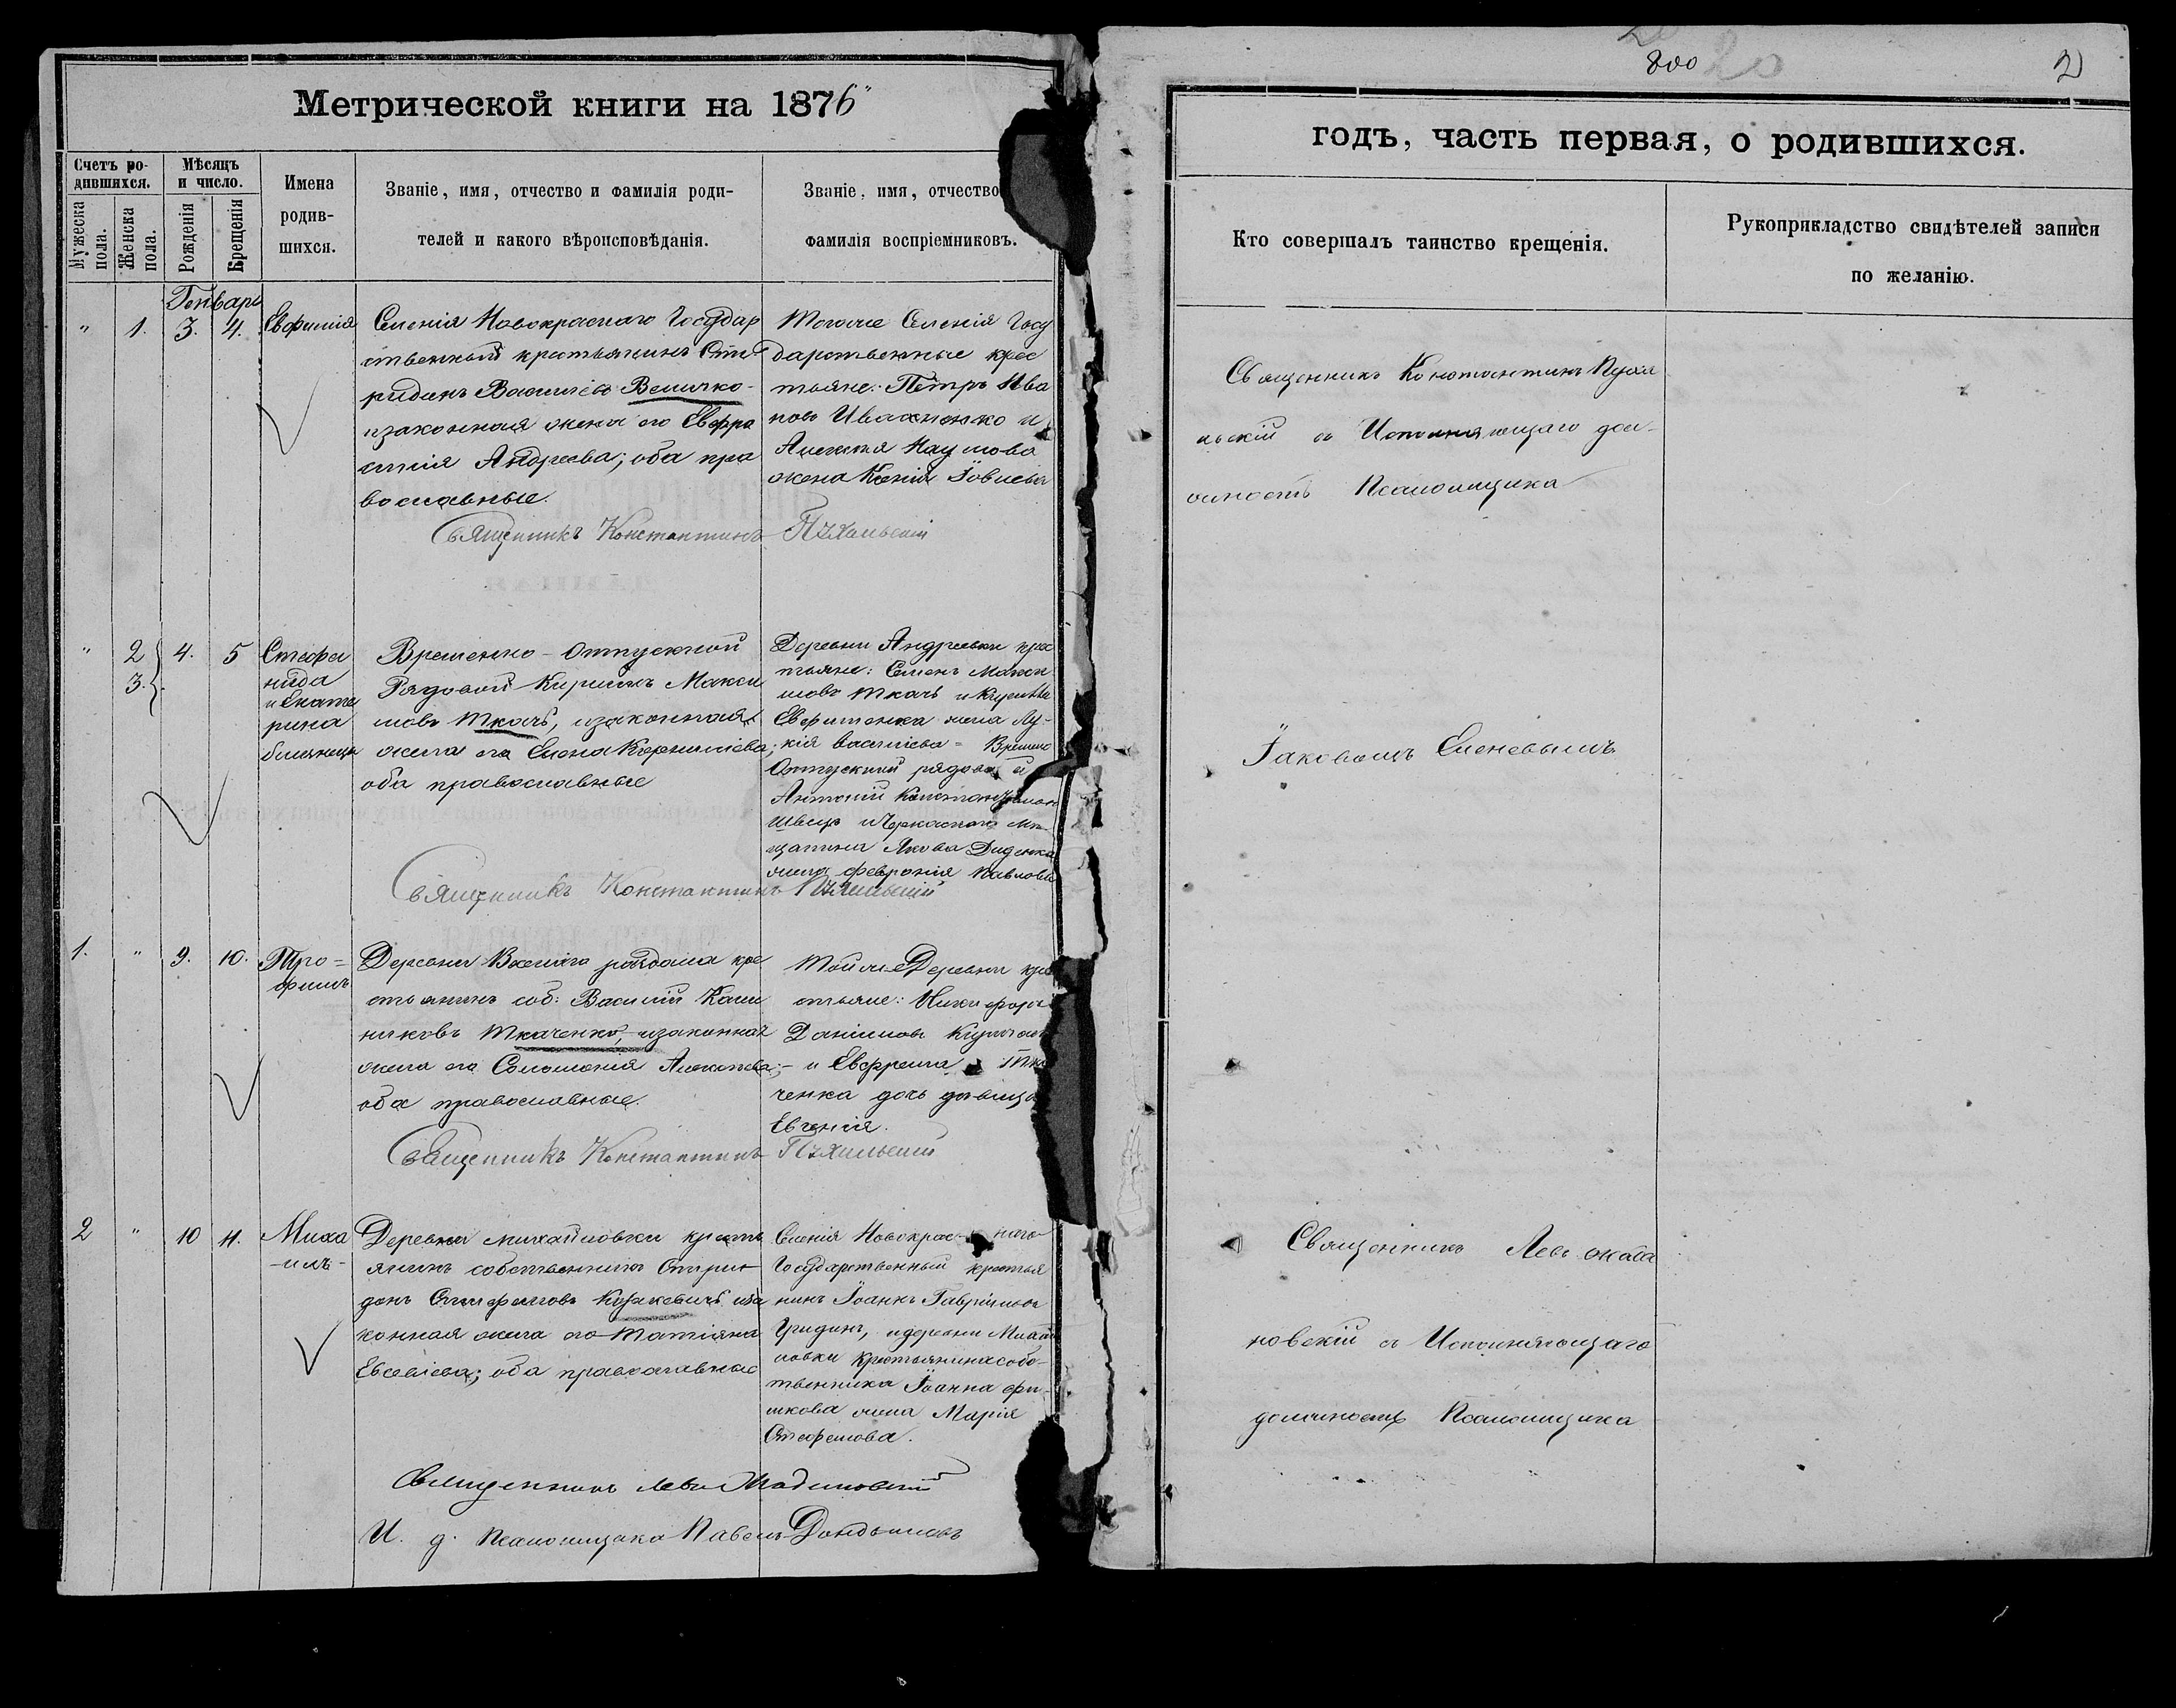 Метрической книги на 1876
Счетъ ро-
дившихся.
Мужеска
пола.
Женска
пола.
Мѣсяцъ
и число.
Рожденія
Крещенія
Имена
родив-
шихся.
Званіе, имя, отчество и фамилія роди-
телей и какого вѣроисповѣданія.
Званіе, имя, отчество
фамилія воспріемниковъ.
Генварь
" 1. 3. 4.
Евфимія
Селенія Новокраснаго Государ
ственный крестьянинъ Спи-
ридонъ Василіевъ Величко-
изаконная жена его Евфра
синія Андреева; оба пра
вославные.
Тогоже Селенія Госу
дарственные крес
тьяне: Петръ Ива
новъ Ивахненко и
Алексѣя Наумова
жена Ксенія Іовлева
Священникъ Константинъ Пухальскій
" 2 3. 4. 5
Стефа
нида
и Екате
рина
близнецы
Временно-отпускной
Рядовой Кириллъ Макси
мовъ Ткачъ, изаконная
жена его Елена Корниліева;
оба православные
Деревни Андреевки крес
тьяне: Семенъ Макси
мовъ Ткачъ и
Евфименка жена Лу-
кія Василіева = Времено
Отпускный рядовой
Антоній
Швецъ и Черкаскаго мѣ-
щанина Якова Диденка
жена Февронія Павлова
Священникъ Константинъ Пухальскій
1. " 9. 10.
Тро=
фимъ
Деревни раздола кре
стьянинъ соб: Василій Кали
никовъ Ткаченко, изаконная
жена его Соломонія Алексѣева;
оба православные.
Тойже Деревни кре
стьяне: Никифоръ
Даніиловъ
- и Евфрема Тка
ченка дочь дѣвица
Евгенія.
Священникъ Константинъ Пухальскій
2 " 10 11.
Миха
-илъ-
Деревни Михайловки кресть
янинъ собственникъ Спири-
донъ Стефановъ иза
конная жена его Татіяна
Евсевіева; оба православные
Селенія Новокрас-наго
Государственный крестья
нинъ Іоаннъ Гавріиловъ
Гридинъ, и деревни Михай
ловки крестьянина собс-
твенника Іоанна
жена Марія
Стефанова.
Священникъ Левъ
И. д. Псаломщика Павелъ
800 20 2
годъ, часть первая, о родившихся.
Кто совершалъ таинство крещенія.
Рукоприкладство свидѣтелей записи
по желанію.
Священникъ Константинъ Пуха
льскій съ Исполняющаго дол-
жность Псаломщика
Іаковомъ Еленевымъ
Священникъ Левъ
новскій съ Исполняющаго
должность Псаломщика